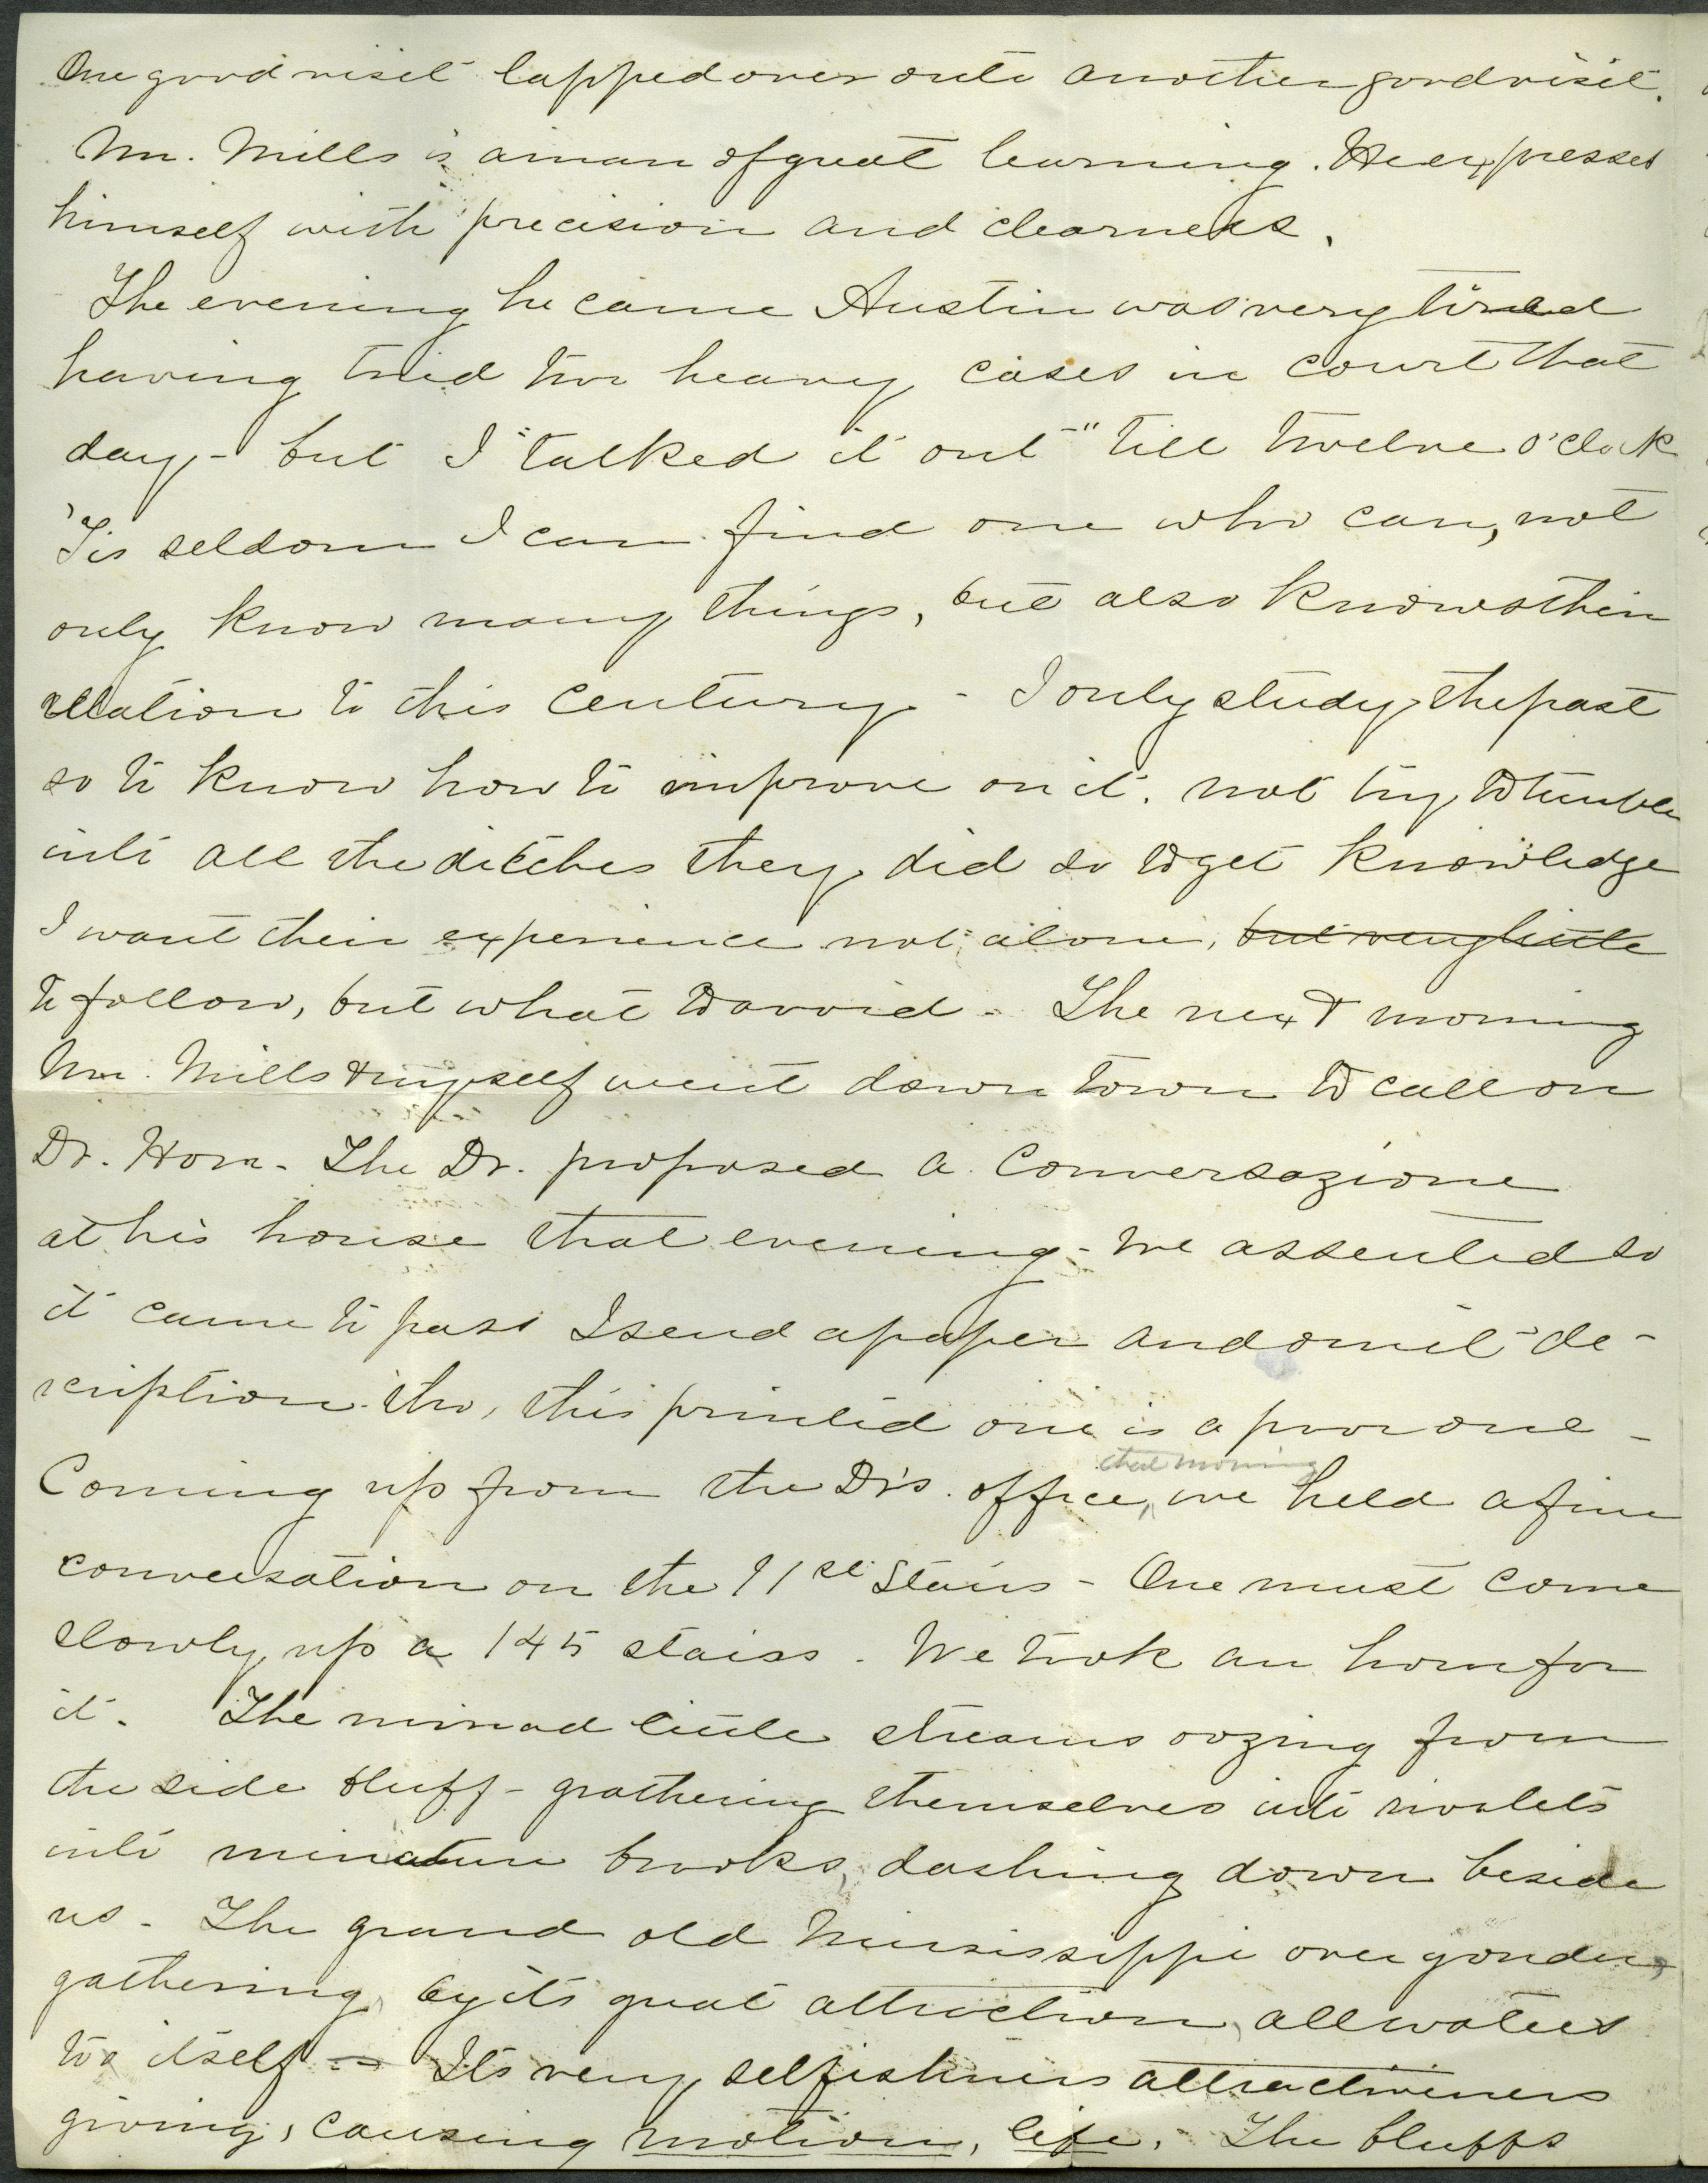 One good visit lapped over onto another good visit.
Mr. Mills is a man of great learning. He expresses
himself with precision and clearness.
The evening he came Austin was very tired
having tried two heavy cases in court that
day - but I "talked it out" till twelve o'clock
'Tis seldom I can find one who can, not
only know many things, but also knows their
relation to this century - I only study the past
so to know how to improve on it. not try to tumble
into all the ditches they did so to get knowledge
I want their experience not alone, but very little
to follow, but what to avoid - The next morning
Mr. Mills & myself went down town to call on
Dr. Horr. The Dr. proposed a Conversazione
at his house that evening - we assented so
it came to pass I send a paper and omit de-
scription tho, this printed one is a poor one -
that morning
Coming up from the Dr's. office, we held a fine
conversation on the 91st Stairs - One must come
slowly up a 145 stairs. We took an hour for
it. The little streams oozing from
the side bluff - gathering themselves into rivulets
into minature brooks, dashing down beside
us - The grand old Mississippi over yonder,
gathering, by its great attraction, all waters
to itself -- Its very selfishness attractiveness
giving, causing motion, life. The bluffs